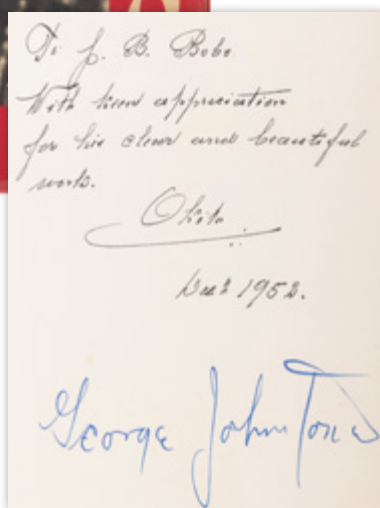 To J. B. Bobo.
With keen appreciation
for his clever and beautiful
work.
Okito
1952.
George Johnstone